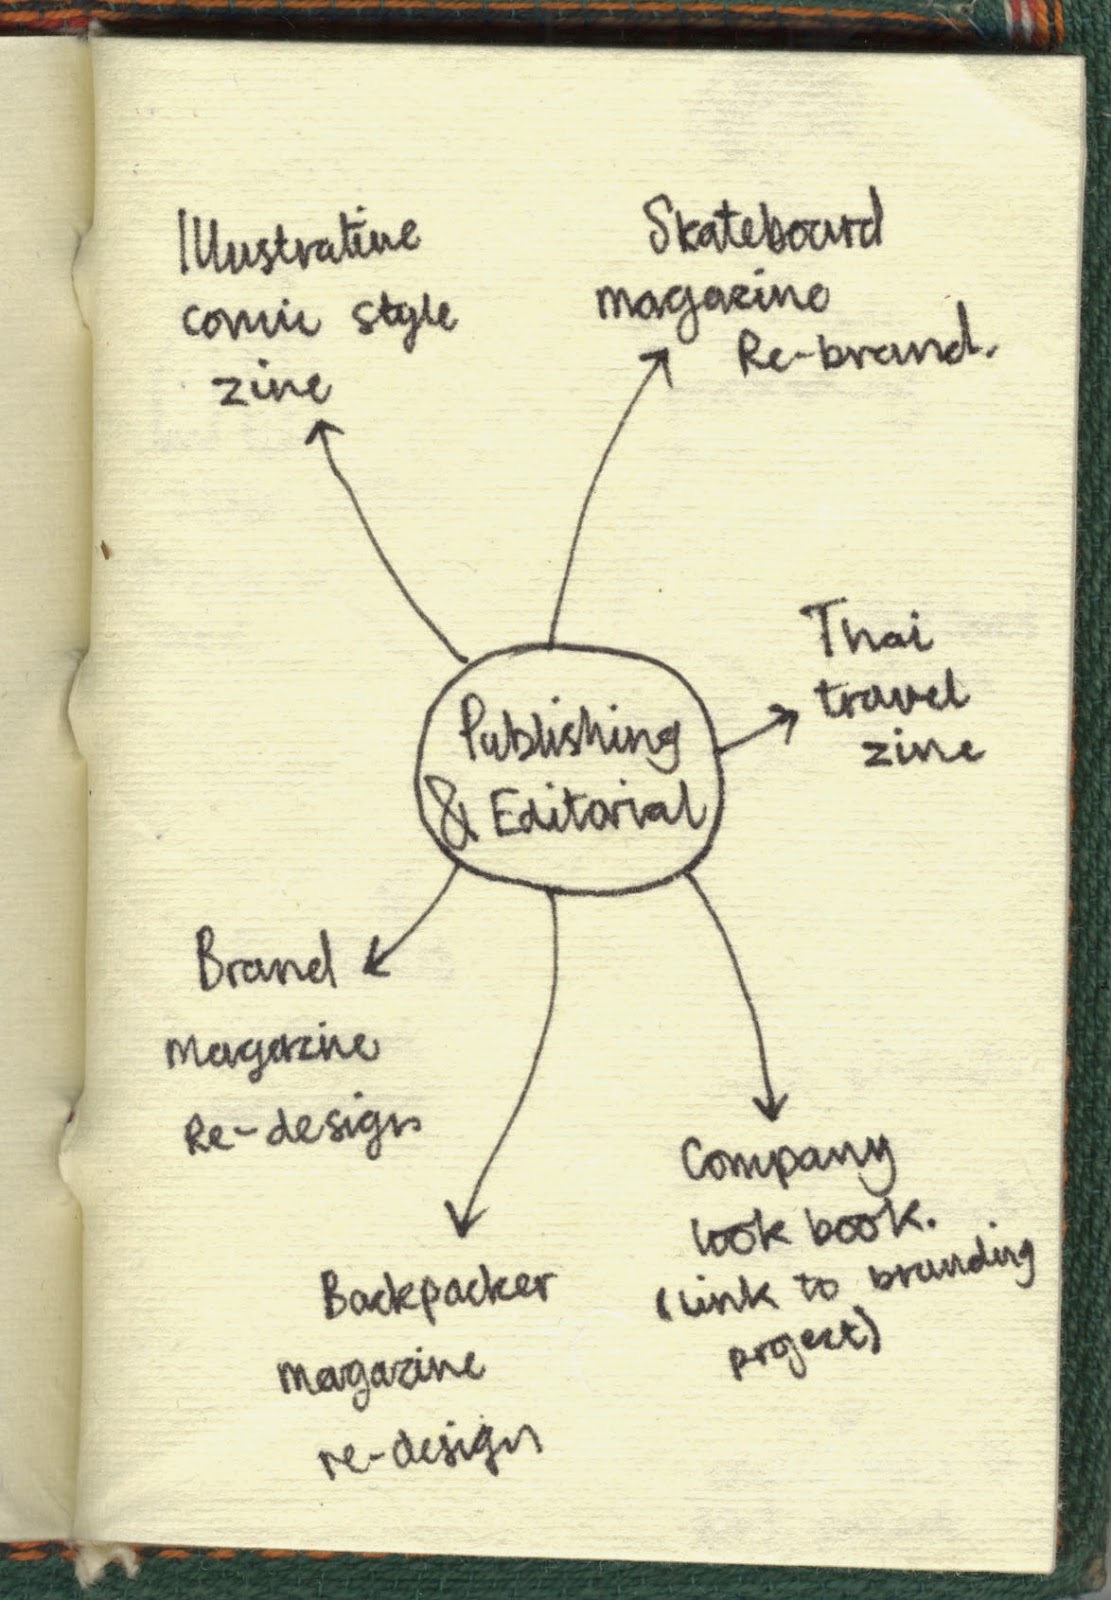 Illustrative
comic style
zine
Skateboard
magazine
Re-brand.
Thai
travel
zine
Publishing
& Editorial
Brand
magazine
Re-design
Company
look book.
(link to branding
project)
Backpacker
magazine
re-design